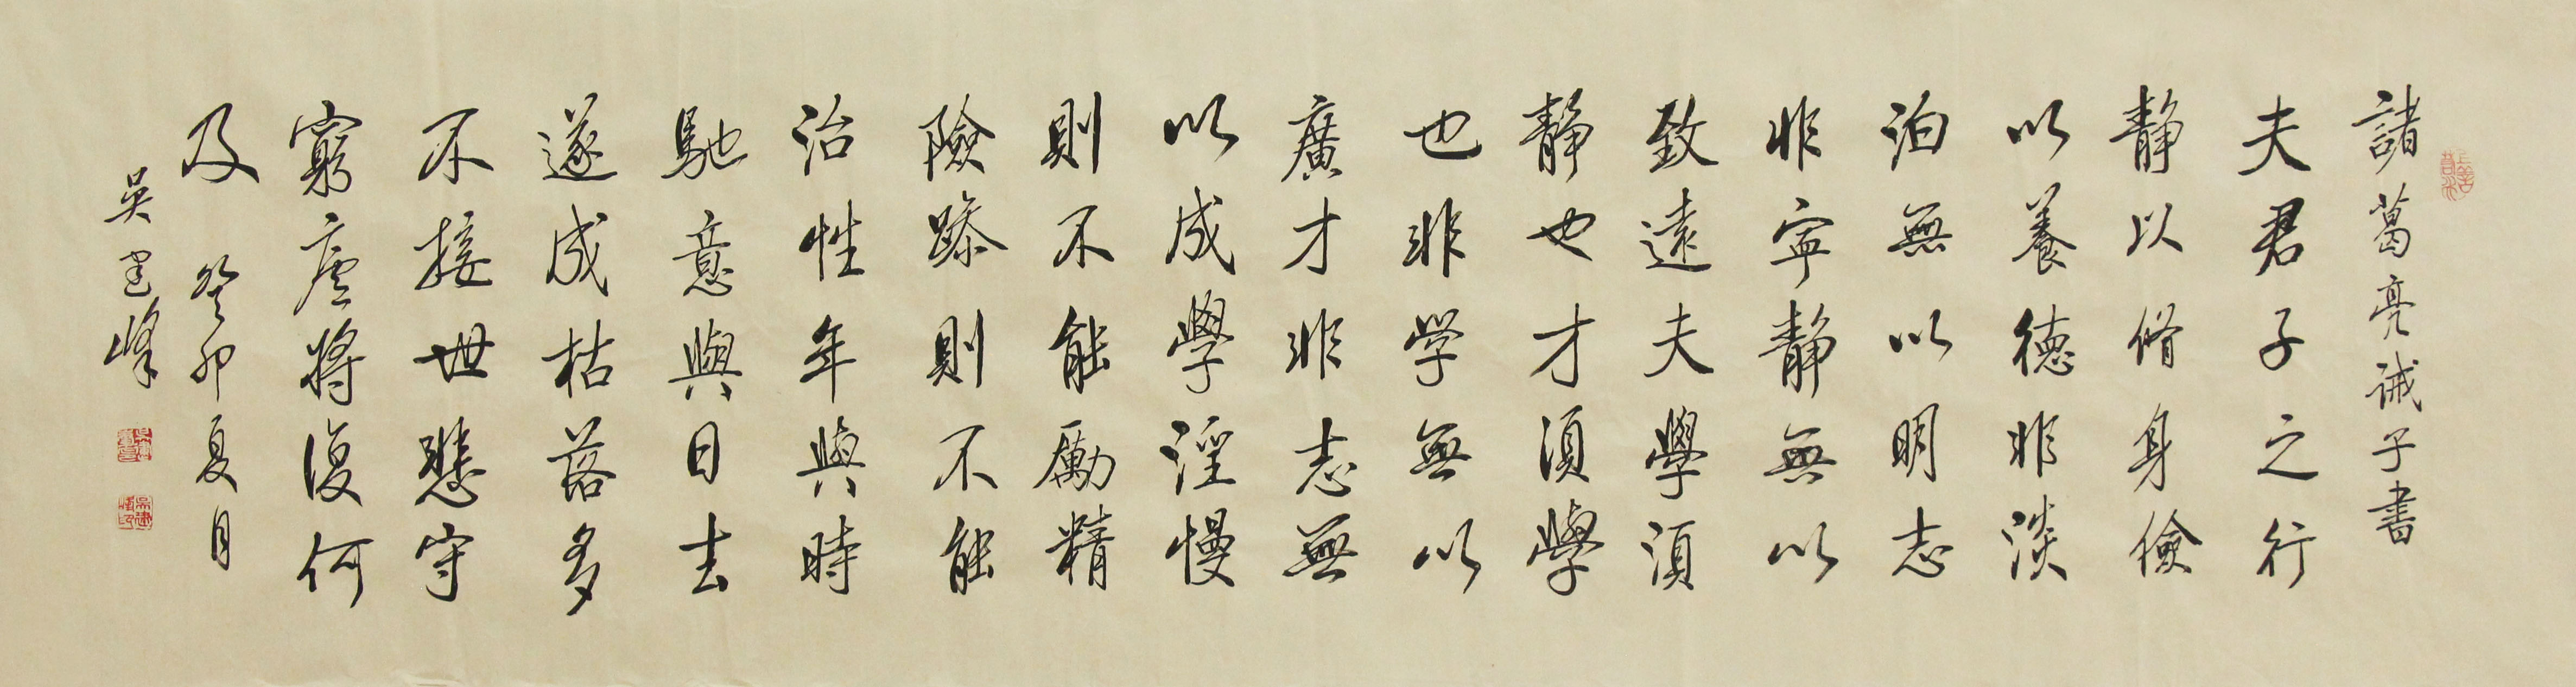 諸葛亮诫子書
夫君子之行
静以修身儉
以養德非淡
泊無以明志
非寧静無以
致遠夫學須
静也才須學
也非学無以
廣才非志無
以成學淫慢
則不能勵精
險躁則不能
治性年與時
馳意與日去
遂成枯落多
不接世悲守
窮廬將復何
及 癸卯夏月
吴建峰